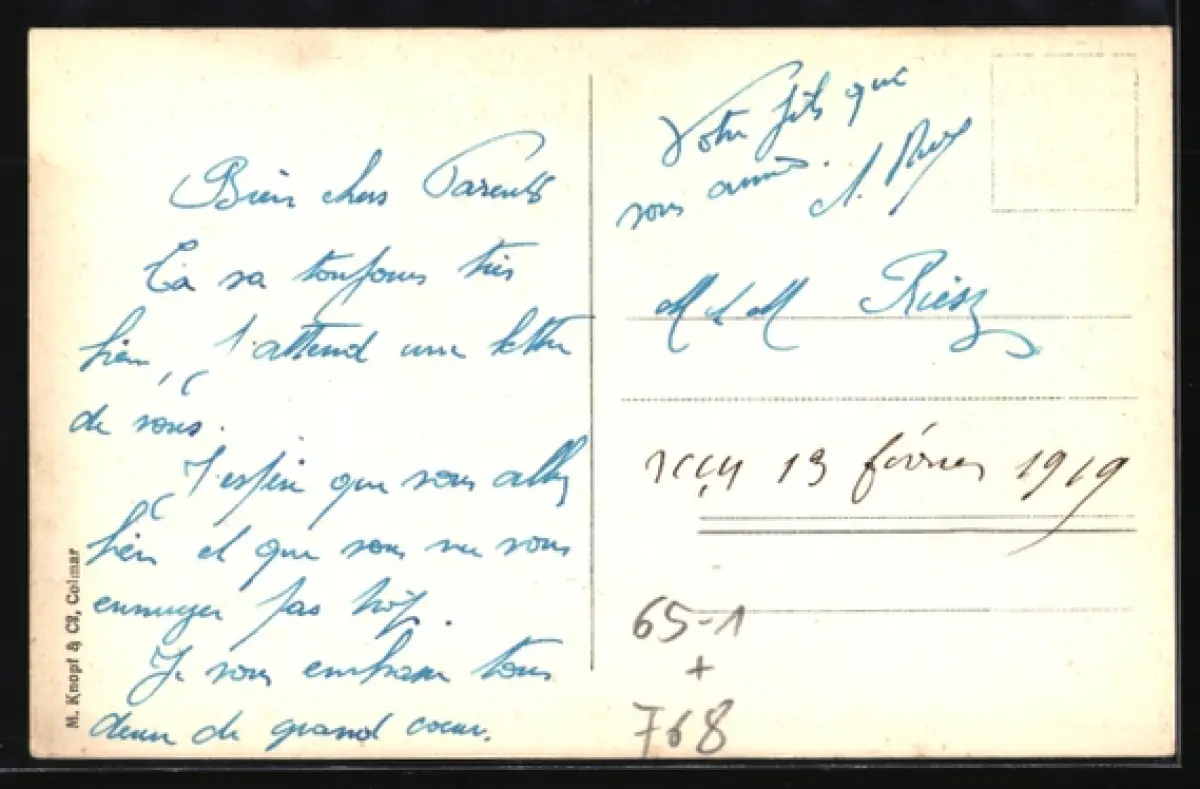 Bien chers Parents
Ça va toujours très
bien, J'attend une lettre
de vous.
J'espère que vous allez
bien et que vous ne vous
ennuyer pas trop.
Je vous embrasse tous
deux de grand coeur.
Votre fils qui
vous aime.
M et M Riesz
reçu 13 février 1919
65-1
+
768
M. Knopf & Cie, Colmar